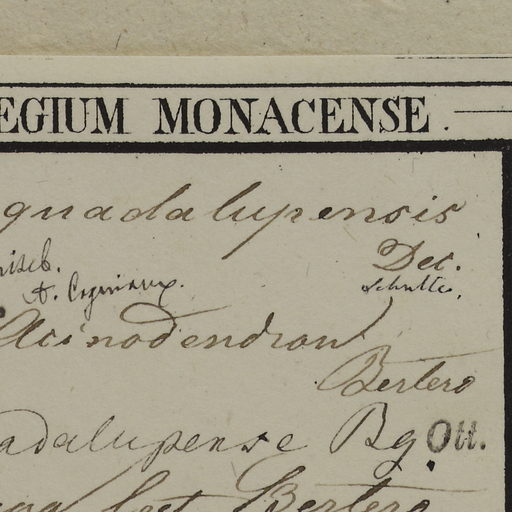 EGIUM MONACENSE.
guadalupensis
Dec.
riseb.
A. Cogniaux.
Schultes.
Acinodendron
Bertero
adalupense Bg Ott.
Bertero